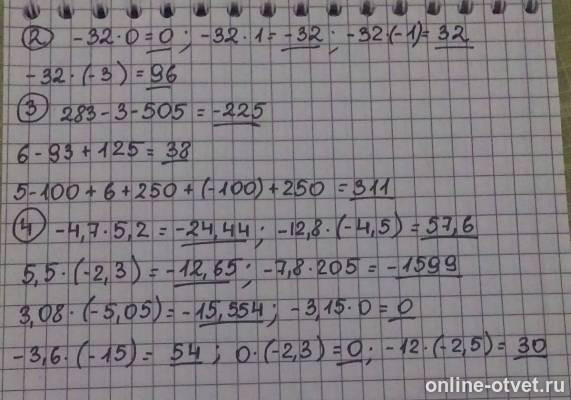 ② -32·0=0; -32·1=-32; -32·(-1)=32
-32·(-3)=96
③ 283-3-505=-225
6-93+125=38
5-100+6+250+(-100)+250=311
④ -4,7·5,2=-24,44; -12,8·(-4,5)=57,6
5,5·(-2,3)=-12,65; -7,8·205=-1599
3,08·(-5,05)=-15,554; -3,15·0=0
-3,6·(-15)= 54; 0·(-2,3)=0; -12·(-2,5)=30
online-otvet.ru